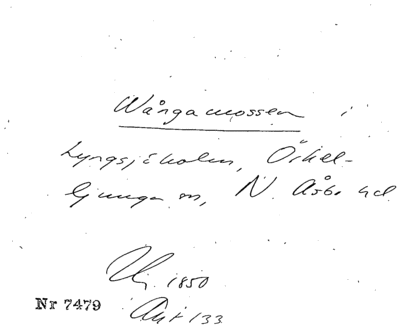 Wångamossen i
Lyngsjöholm, Örkel-
ljunga sn, N. Åsbo hd.
1850
Nr 7479
Akt 133